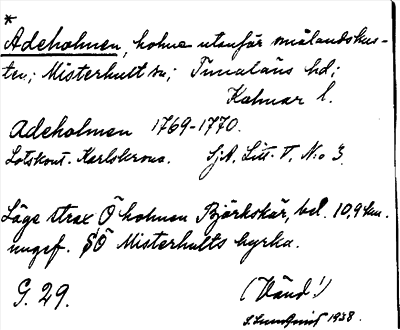 *
Adeholmen, holme utanför smålandskus-
ten; Misterhult sn; Tunaläns hd;
Kalmar l.
Adeholmen 1769-1770.
Lotskont. Karlskrona. Sjk. Litt. T, N:o 3.
Läge strax Ö holmen Björkskär, bel. 10,9 km.
ungef. SÖ Misterhults kyrka.
G. 29.
(Vänd!)
1938